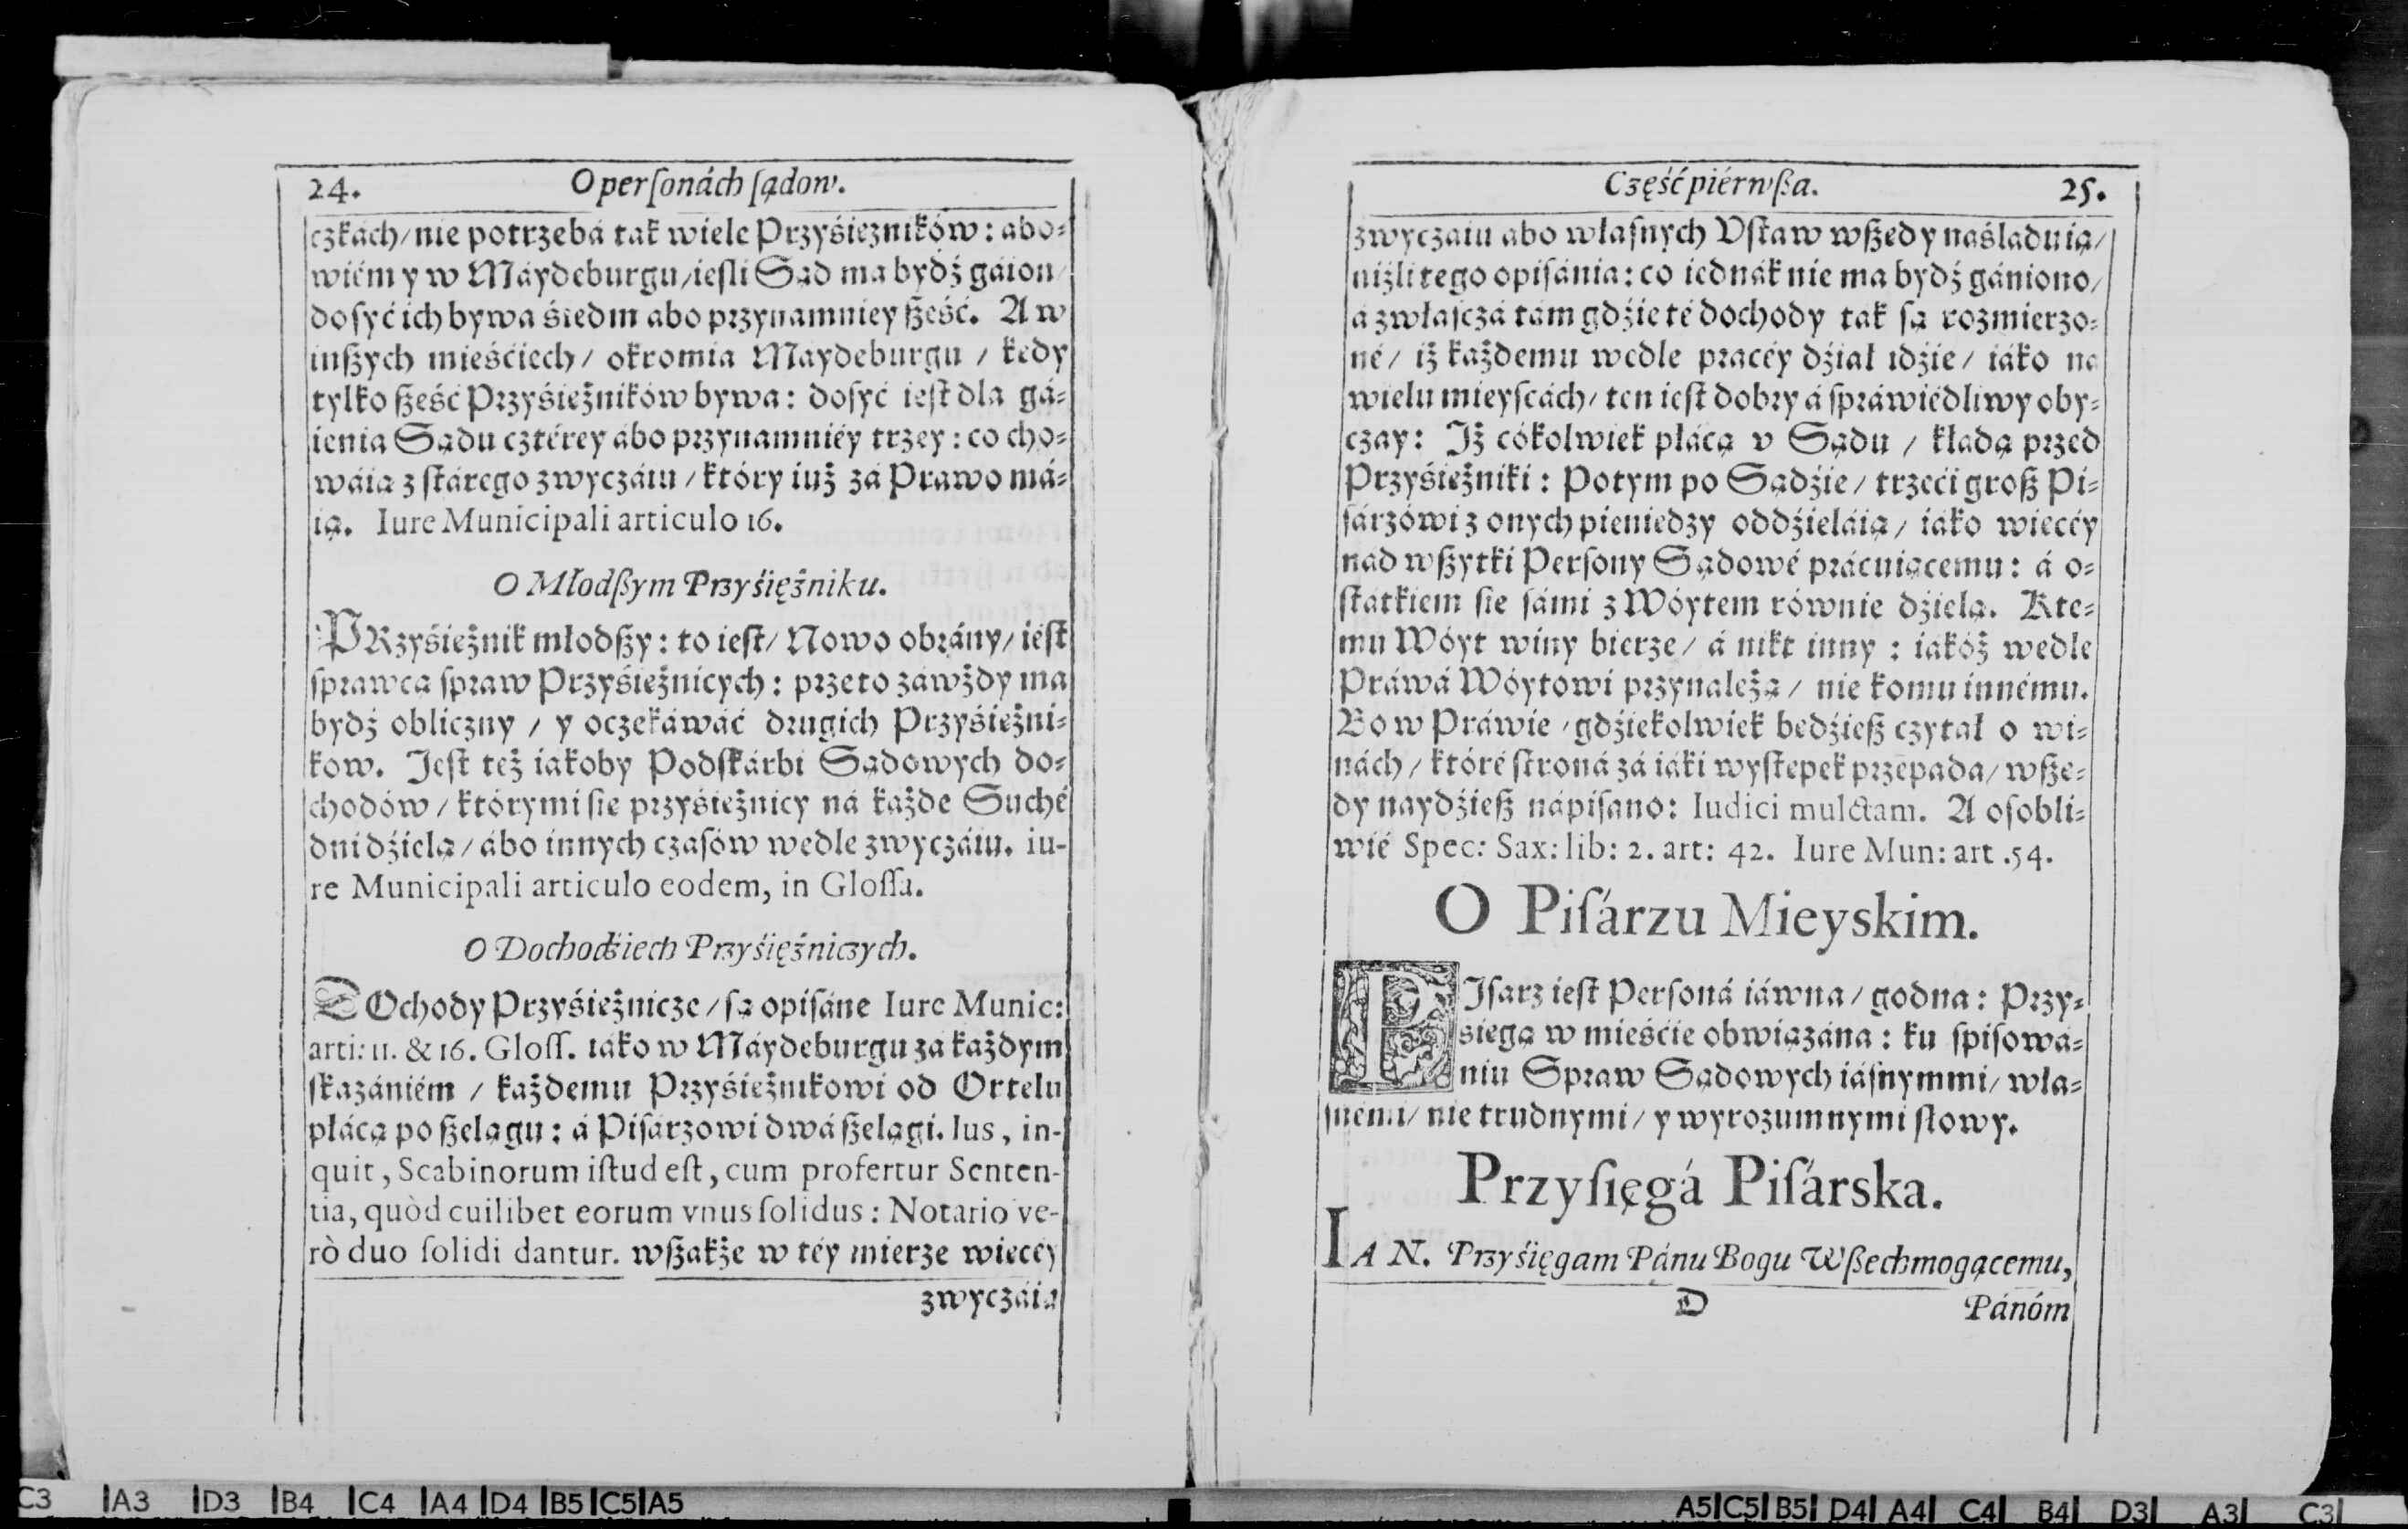 24. O perſonách ſądow.
czkách/ nie potrzebá tak wiele Przyśiężników: abo-
wiém y w Máydeburgu/ ieſli Sąd ma bydź gáion/
doſyć ich bywa śiedm abo przynamniey ßeść. A w
inßych mieśćiech/ okromia Máydeburgu / kędy
tylko ßeść Przyśiężników bywa: doſyć ieſt dla gá-
ienia Sądu cztérey ábo przynamniéy trzey: co cho-
wáią z ſtárego zwyczáiu / który iuż zá Prawo má-
ią. Iure Municipali articulo 16.
O Młodßym Przyśiężniku.
PRzyśiężnik młodßy: to ieſt/ Nowo obrány/ ieſt
ſprawcą ſpraw Przyśiężnicych: przeto záwżdy ma
bydź obliczny / y oczekáwáć drugich Przyśiężni-
kow. Jeſt też iakoby Podſkárbi Sądowych do-
chodów/ którymi ſie przyśiężnicy ná każde Suché
dni dźielą/ ábo innych czaſów wedle zwyczáiu. iu-
re Municipali articulo eodem, in Gloſſa.
O Dochodźiech Przyśiężniczych.
DOchody Przyśiężnicze/ ſą opiſáne Iure Munic:
arti: 11. & 16. Gloſſ. iáko w Máydeburgu zá każdym
ſkazániém / każdemu Przyśiężnikowi od Ortelu
płácą po ßelągu: á Piſárzowi dwá ßelągi. Ius, in-
quit, Scabinorum iſtud eſt, cum profertur Senten-
tia, quòd cuilibet eorum vnus ſolidus: Notario ve-
rò duo ſolidi dantur. wßakże w téy mierze więcéy
zwyczáią
Część piérwßa. 25.
zwyczaiu abo właſnych Vſtaw wßędy naśladuią/
niżli tego opiſánia: co iednák nie ma bydź gániono/
á zwłaſczá tám gdźie té dochody tak ſą rozmierzo-
né/ iż każdemu wedle pracéy dźiał idźie/ iáko na
wielu mieyſcách/ ten ieſt dobry á ſpráwiedliwy oby-
czay: Iż cókolwiek płácą v Sądu / kłádą przed
Przyśiężniki: Potym po Sądźie/ trzeći groß Pi-
ſárzówi z onych pieniędzy oddźieláią/ iáko więcéy
nád wßytki Perſony Sądowé prácuiącemu: á o-
ſtátkiem ſie ſámi z Wóytem równie dźielą. Kte-
mu Wóyt winy bierze/ á nikt inny: iákóż wedle
Práwá Wóytowi przynależą/ nie komu innému.
Bo w Práwie /gdźiekolwiek będźieß czytał o wi-
nách/ któré ſtroná zá iáki wyſtępek przépada/ wßę-
dy naydźieß nápiſano: Iudici mulctam. A oſobli-
wié Spec: Sax: lib: 2. art: 42. Iure Mun: art .54.
O Piſárzu Mieyskim.
PIſarz ieſt Perſoná iáwna/ godna: Przy-
sięgą w mieśćie obwiązána: ku ſpiſowá-
niu Spraw Sądowych iáſnymmi/ wła-
ſnémi/ nie trudnymi/ y wyrozumnymi ſłowy.
Przyſięgá Piſárska.
IA N. Przyśięgam Pánu Bogu Wßechmogącemu,
D Pánóm
C3 A3 D3 B4 C4 A4 D4 B5 C5 A5
A5 C5 B5 D4 A4 C4 B4 D3 A3 C3